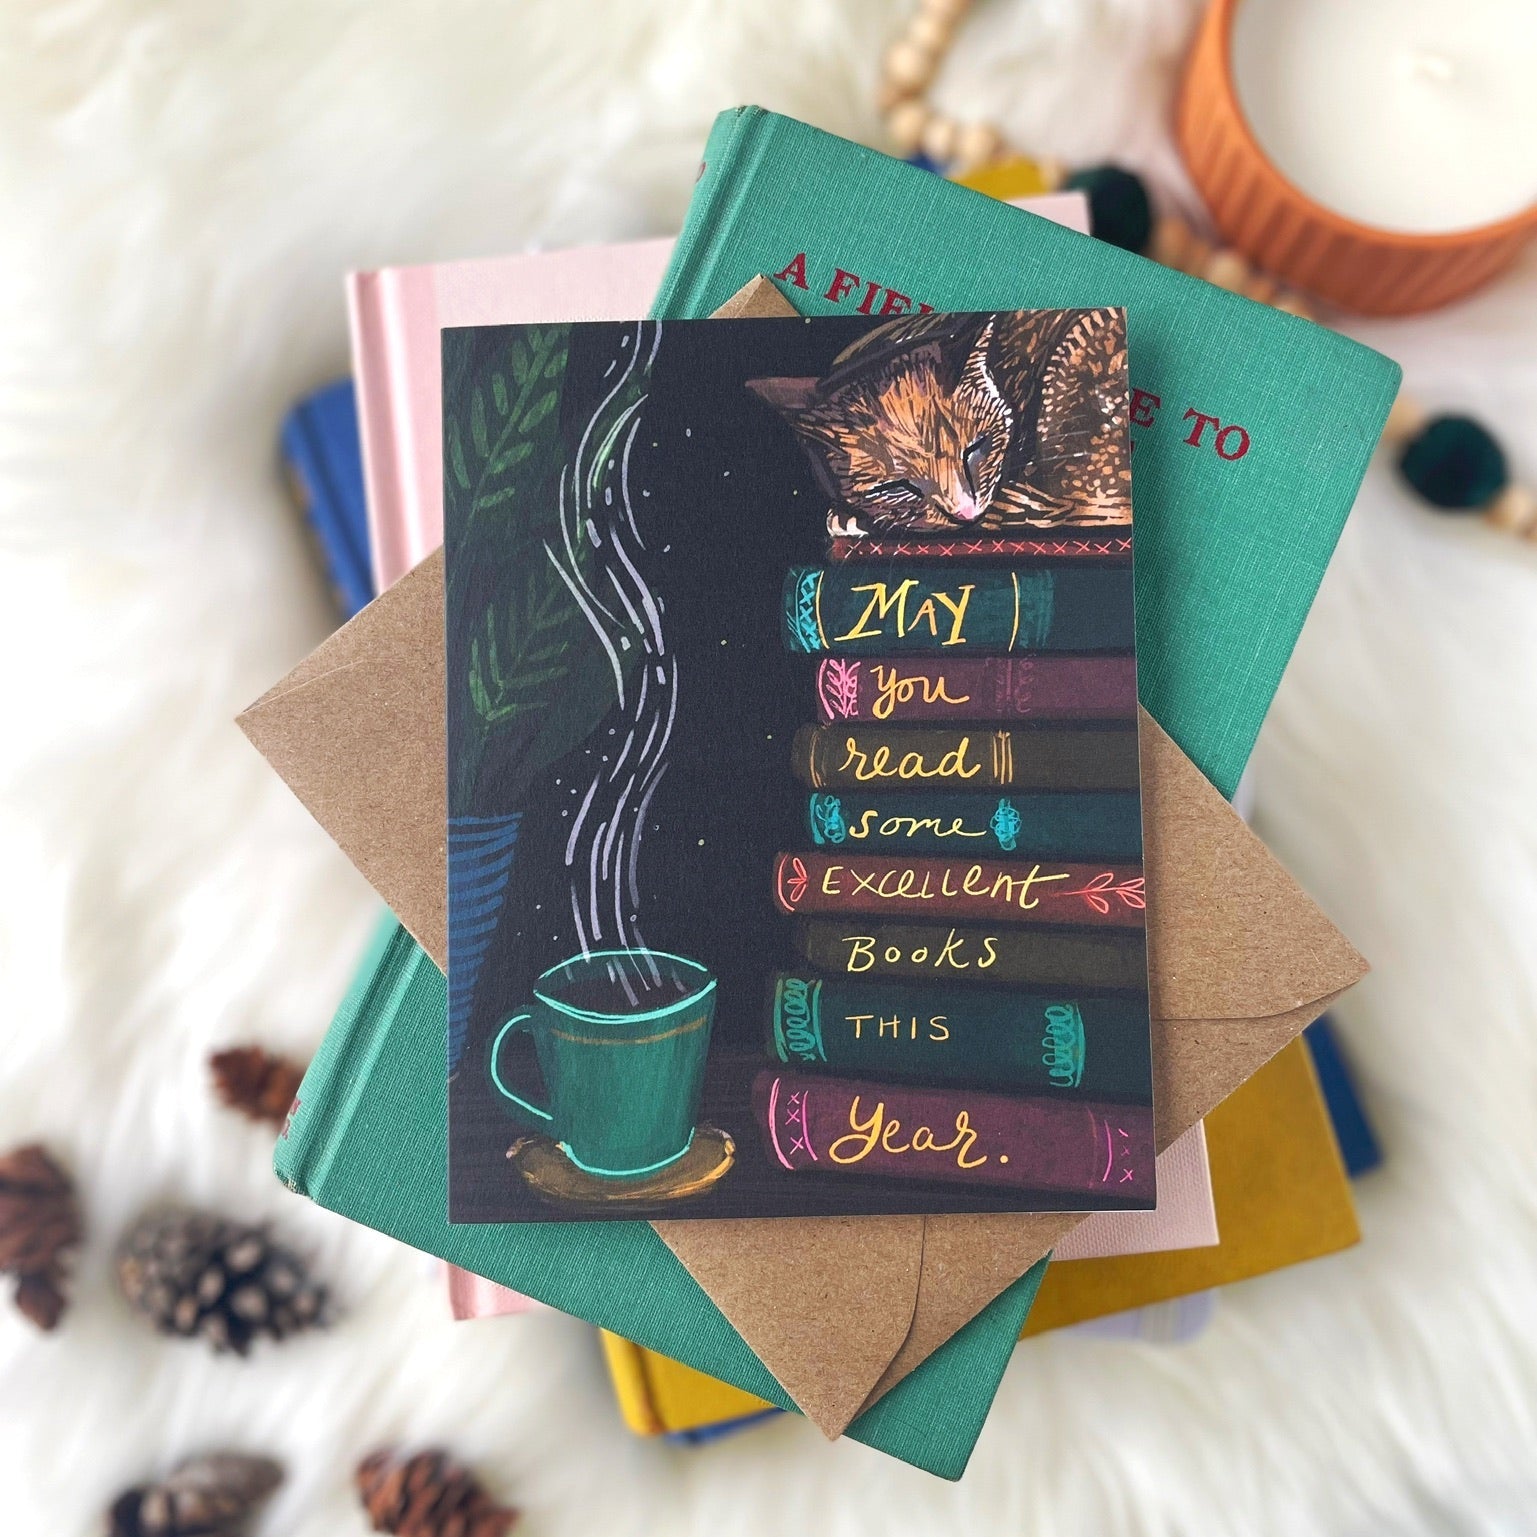 A
TO
May
you
read
some
Excellent
Books
THIS
year.